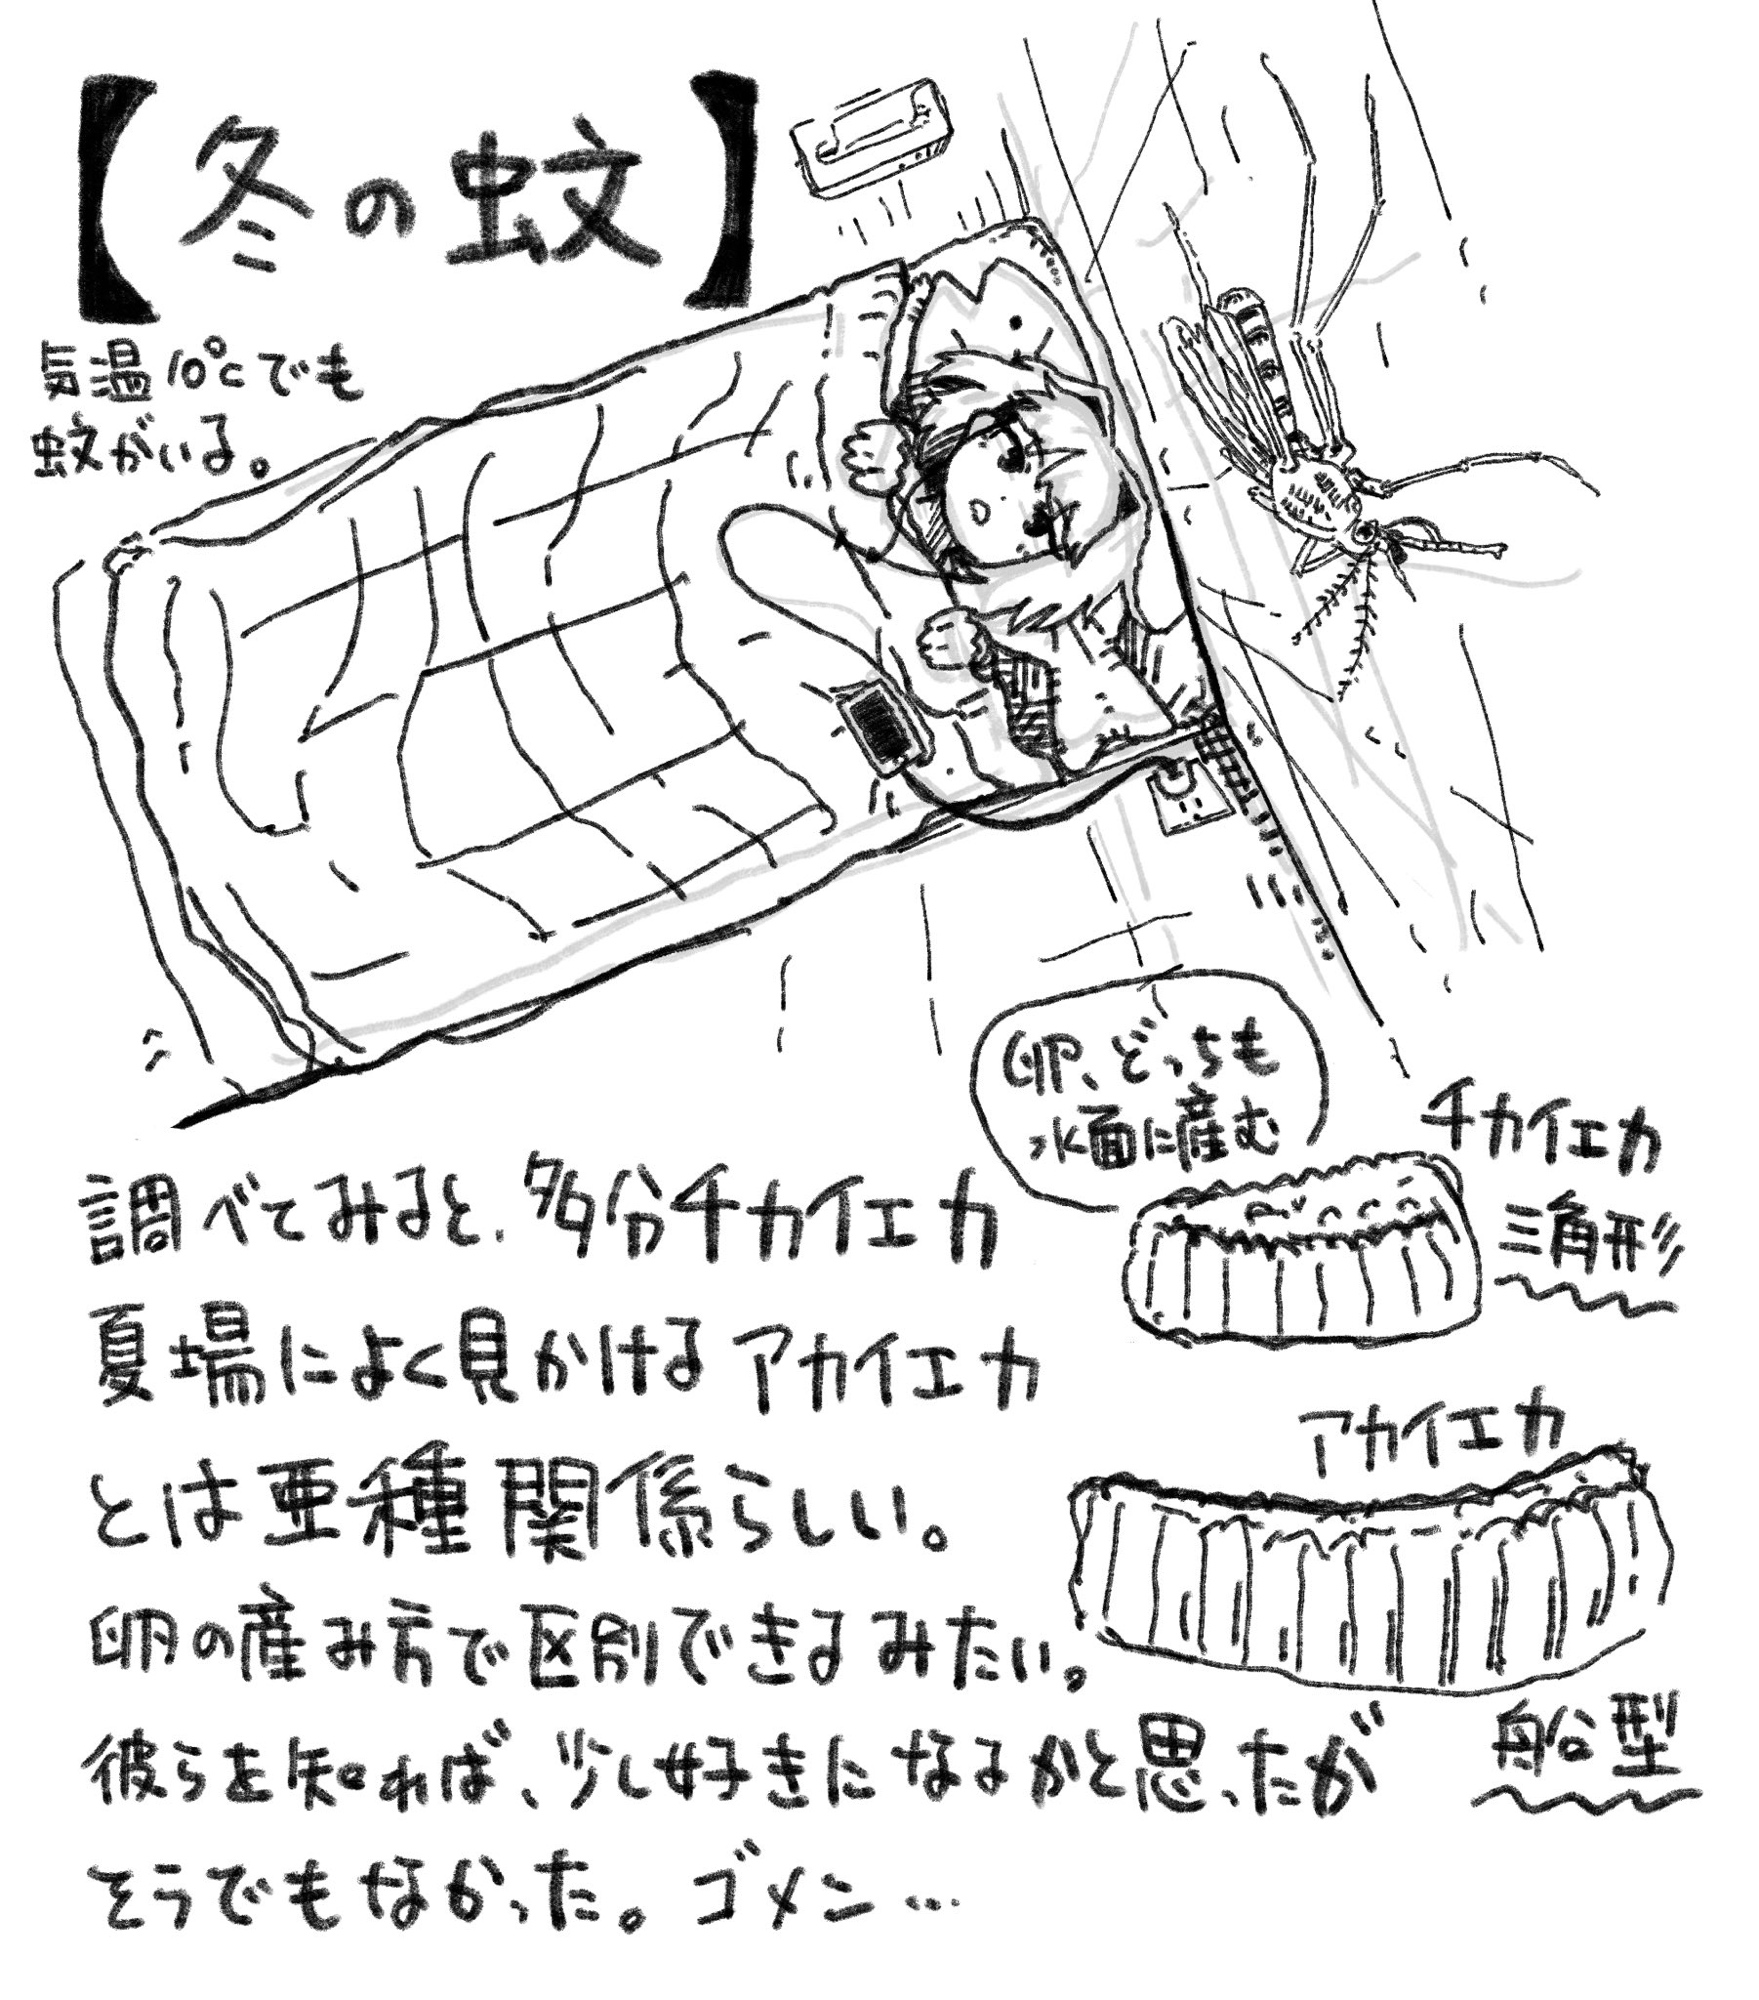 【冬の蚊】
気温10℃でも
蚊がいる。
卵、どっちも
水面に産む
チカイエカ
三角形
調べてみると、多分チカイエカ
夏場によく見かけるアカイエカ
とは亜種関係らしい。
卵の産み方で区別できるみたい。
彼らを知れば、少し好きになるかと思ったが
そうでもなかった。ゴメン…
アカイエカ
船型